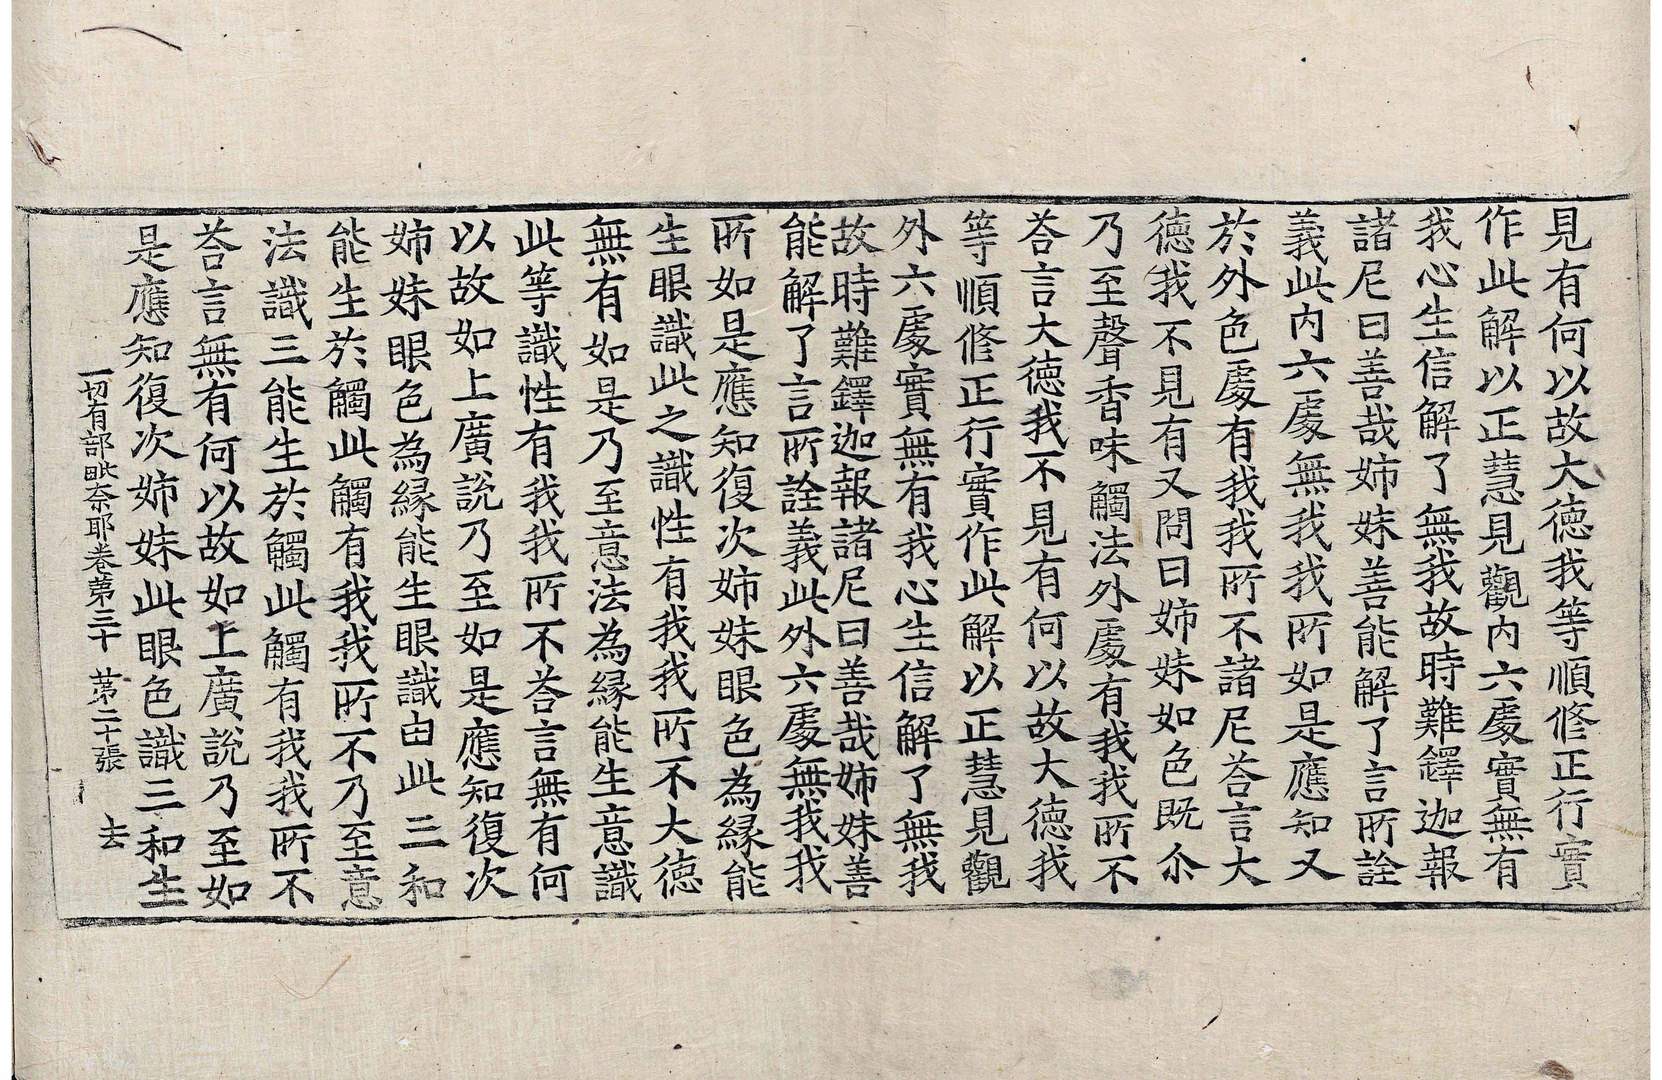 見有何以故大徳我等順修正行實
作此解以正慧見觀内六處實無有
我心生信解了無我故時難鐸迦報
諸尼曰善哉姉妹善能解了言所詮
義此内六處無我我所如是應知又
於外色處有我我所不諸尼荅言大
徳我不見有又問曰姉妹如色既尒
乃至聲香味觸法外處有我我所不
荅言大徳我不見有何以故大徳我
等順修正行實作此解以正慧見觀
外六處實無有我心生信解了無我
故時難鐸迦報諸尼曰善哉姉妹善
能解了言所詮義此外六處無我我
所如是應知復次姉妹眼色為縁能
生眼識此之識性有我我所不大徳
無有如是乃至意法為縁能生意識
此等識性有我我所不荅言無有何
以故如上廣説乃至如是應知復次
姉妹眼色為縁能生眼識由此三和
能生於觸此觸有我我所不乃至意
法識三能生於觸此觸有我我所不
荅言無有何以故如上廣説乃至如
是應知復次姉妹此眼色識三和生
一切有部毗奈耶卷第三十　第二十張　去